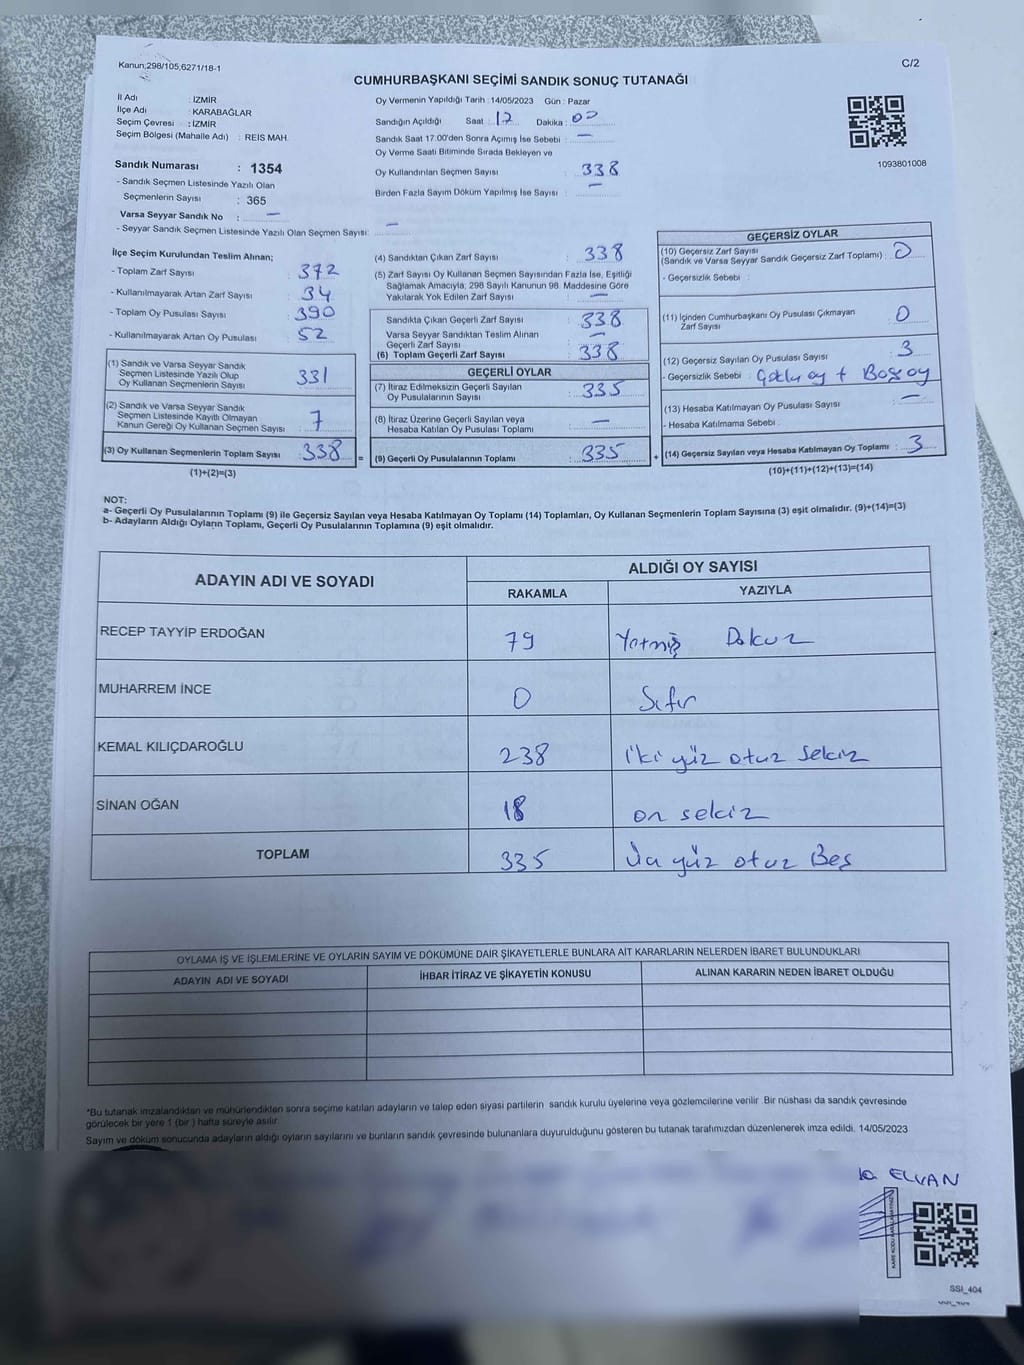 Kanun;298/105,6271/18-1
C/2
CUMHURBAŞKANI SEÇİMİ SANDIK SONUÇ TUTANAĞI
İl Adı : İZMİR
İlçe Adı : KARABAĞLAR
Seçim Çevresi : İZMİR
Seçim Bölgesi (Mahalle Adı) : REİS MAH.
Sandık Numarası : 1354
- Sandık Seçmen Listesinde Yazılı Olan
Seçmenlerin Sayısı : 365
Varsa Seyyar Sandık No : —
- Seyyar Sandık Seçmen Listesinde Yazılı Olan Seçmen Sayısı: —
Oy Vermenin Yapıldığı Tarih : 14/05/2023 Gün : Pazar
Sandığın Açıldığı Saat : 17 Dakika : 00
Sandık Saat 17:00'den Sonra Açımış İse Sebebi : —
Oy Verme Saati Bitiminde Sırada Bekleyen ve
Oy Kullandırılan Seçmen Sayısı : 338
Birden Fazla Sayım Döküm Yapılmış İse Sayısı : —
1093801008
İlçe Seçim Kurulundan Teslim Alınan;
- Toplam Zarf Sayısı : 372
- Kullanılmayarak Artan Zarf Sayısı : 34
- Toplam Oy Pusulası Sayısı : 390
- Kullanılmayarak Artan Oy Pusulası : 52
(1) Sandık ve Varsa Seyyar Sandık
Seçmen Listesinde Yazılı Olup
Oy Kullanan Seçmenlerin Sayısı : 331
(2) Sandık ve Varsa Seyyar Sandık
Seçmen Listesinde Kayıtlı Olmayan
Kanun Gereği Oy Kullanan Seçmen Sayısı : 7
(3) Oy Kullanan Seçmenlerin Toplam Sayısı : 338 =
(1)+(2)=(3)
(4) Sandıktan Çıkan Zarf Sayısı : 338
(5) Zarf Sayısı Oy Kullanan Seçmen Sayısından Fazla İse, Eşitliği
Sağlamak Amacıyla, 298 Sayılı Kanunun 98. Maddesine Göre
Yakılarak Yok Edilen Zarf Sayısı : —
Sandıkta Çıkan Geçerli Zarf Sayısı : 338
Varsa Seyyar Sandıktan Teslim Alınan
Geçerli Zarf Sayısı : —
(6) Toplam Geçerli Zarf Sayısı : 338
GEÇERLİ OYLAR
(7) İtiraz Edilmeksizin Geçerli Sayılan
Oy Pusulalarının Sayısı : 335
(8) İtiraz Üzerine Geçerli Sayılan veya
Hesaba Katılan Oy Pusulası Toplamı : —
(9) Geçerli Oy Pusulalarının Toplamı : 335 +
GEÇERSİZ OYLAR
(10) Geçersiz Zarf Sayısı
(Sandık ve Varsa Seyyar Sandık Geçersiz Zarf Toplamı) : 0
- Geçersizlik Sebebi :
(11) İçinden Cumhurbaşkanı Oy Pusulası Çıkmayan
Zarf Sayısı : 0
(12) Geçersiz Sayılan Oy Pusulası Sayısı : 3
- Geçersizlik Sebebi : oy + Boş oy
(13) Hesaba Katılmayan Oy Pusulası Sayısı : —
- Hesaba Katılmama Sebebi :
(14) Geçersiz Sayılan veya Hesaba Katılmayan Oy Toplamı : 3
(10)+(11)+(12)+(13)=(14)
NOT:
a- Geçerli Oy Pusulalarının Toplamı (9) ile Geçersiz Sayılan veya Hesaba Katılmayan Oy Toplamı (14) Toplamları, Oy Kullanan Seçmenlerin Toplam Sayısına (3) eşit olmalıdır. (9)+(14)=(3)
b- Adayların Aldığı Oyların Toplamı, Geçerli Oy Pusulalarının Toplamına (9) eşit olmalıdır.
ADAYIN ADI VE SOYADI
ALDIĞI OY SAYISI
RAKAMLA YAZIYLA
RECEP TAYYİP ERDOĞAN 79 Yetmiş Dokuz
MUHARREM İNCE 0 Sıfır
KEMAL KILIÇDAROĞLU 238 iki yüz otuz sekiz
SİNAN OĞAN 18 on sekiz
TOPLAM 335 Üç yüz otuz Beş
OYLAMA İŞ VE İŞLEMLERİNE VE OYLARIN SAYIM VE DÖKÜMÜNE DAİR ŞİKAYETLERLE BUNLARA AİT KARARLARIN NELERDEN İBARET BULUNDUKLARI
ADAYIN ADI VE SOYADI İHBAR İTİRAZ VE ŞİKAYETİN KONUSU ALINAN KARARIN NEDEN İBARET OLDUĞU
*Bu tutanak imzalandıktan ve mühürlendikten sonra seçime katılan adayların ve talep eden siyasi partilerin sandık kurulu üyelerine veya gözlemcilerine verilir. Bir nüshası da sandık çevresinde
görülecek bir yere 1 (bir ) hafta süreyle asılır.
Sayım ve döküm sonucunda adayların aldığı oyların sayılarını ve bunların sandık çevresinde bulunanlara duyurulduğunu gösteren bu tutanak tarafımızdan düzenlenerek imza edildi. 14/05/2023
ELVAN
SSI_404